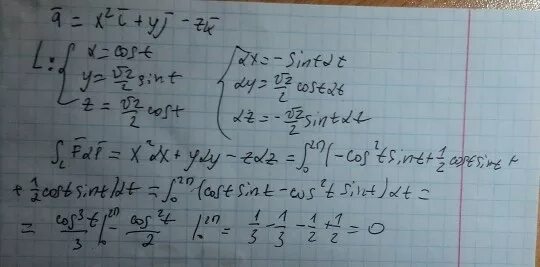 ā = x²ī + yj̄ - zk̄
L: { x = cost
y = √2/2 sint
z = √2/2 cost
{ dx = -sintdt
dy = √2/2 costdt
dz = -√2/2 sintdt
∫_L F̄dr̄ = x²dx + ydy - zdz = ∫₀^2π (-cos²tsint + 1/2 costsint +
+ 1/2 costsint)dt = ∫₀^2π (costsint - cos²tsint)dt =
= cos³t/3 |₀^2π - cos²t/2 |₀^2π = 1/3 - 1/3 - 1/2 + 1/2 = 0